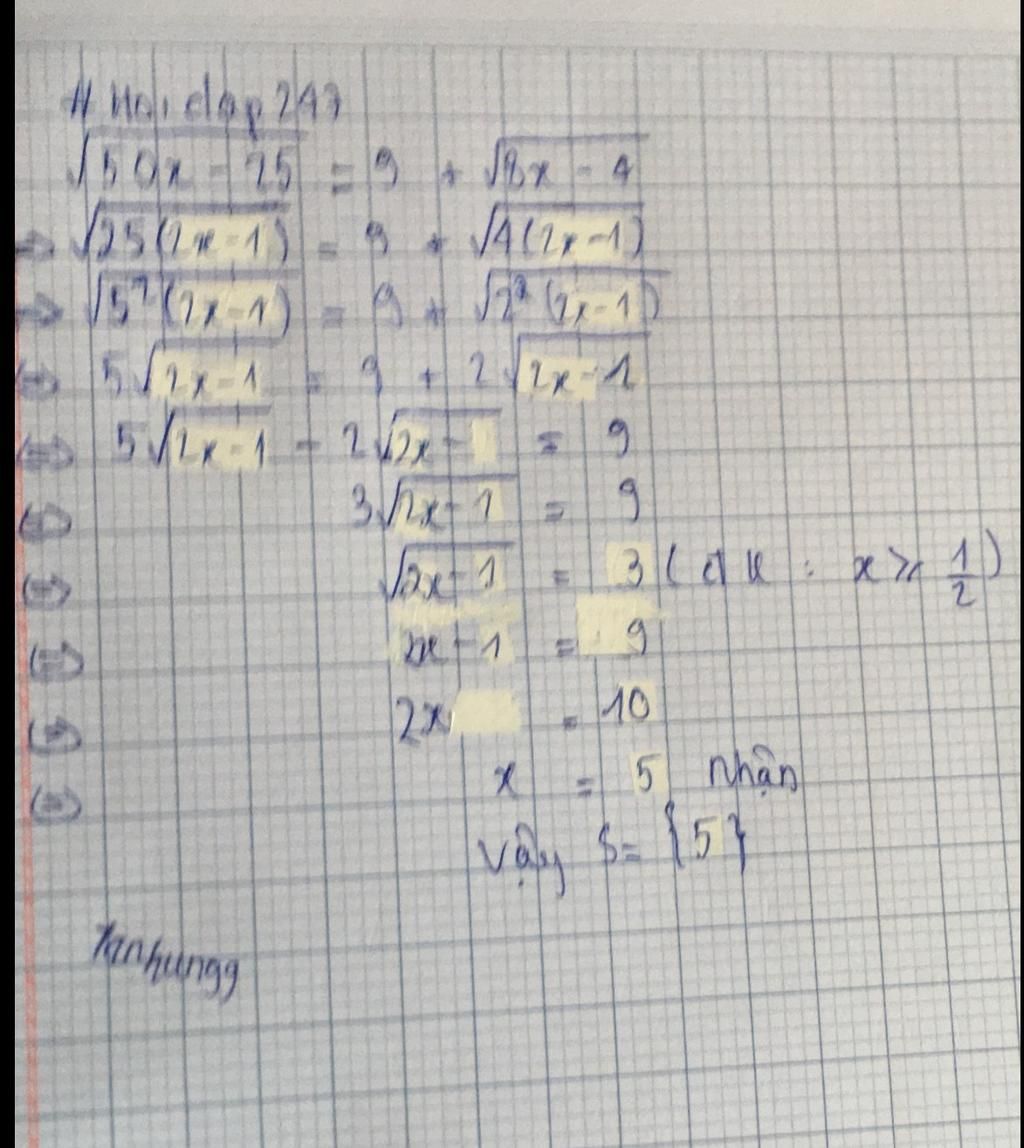 # Hoi dap 247
√50x - 25 = 9 + √8x - 4
=> √25(2x-1) = 9 + √4(2x-1)
=> √5²(2x-1) = 9 + √2²(2x-1)
<=> 5√2x-1 = 9 + 2√2x-1
<=> 5√2x-1 - 2√2x- = 9
<=> 3√2x-1 = 9
<=> √2x-1 = 3 (đk : x ≥ 1/2)
<=> 2x-1 = 9
<=> 2x = 10
<=> x = 5 nhận
vậy S = {5}